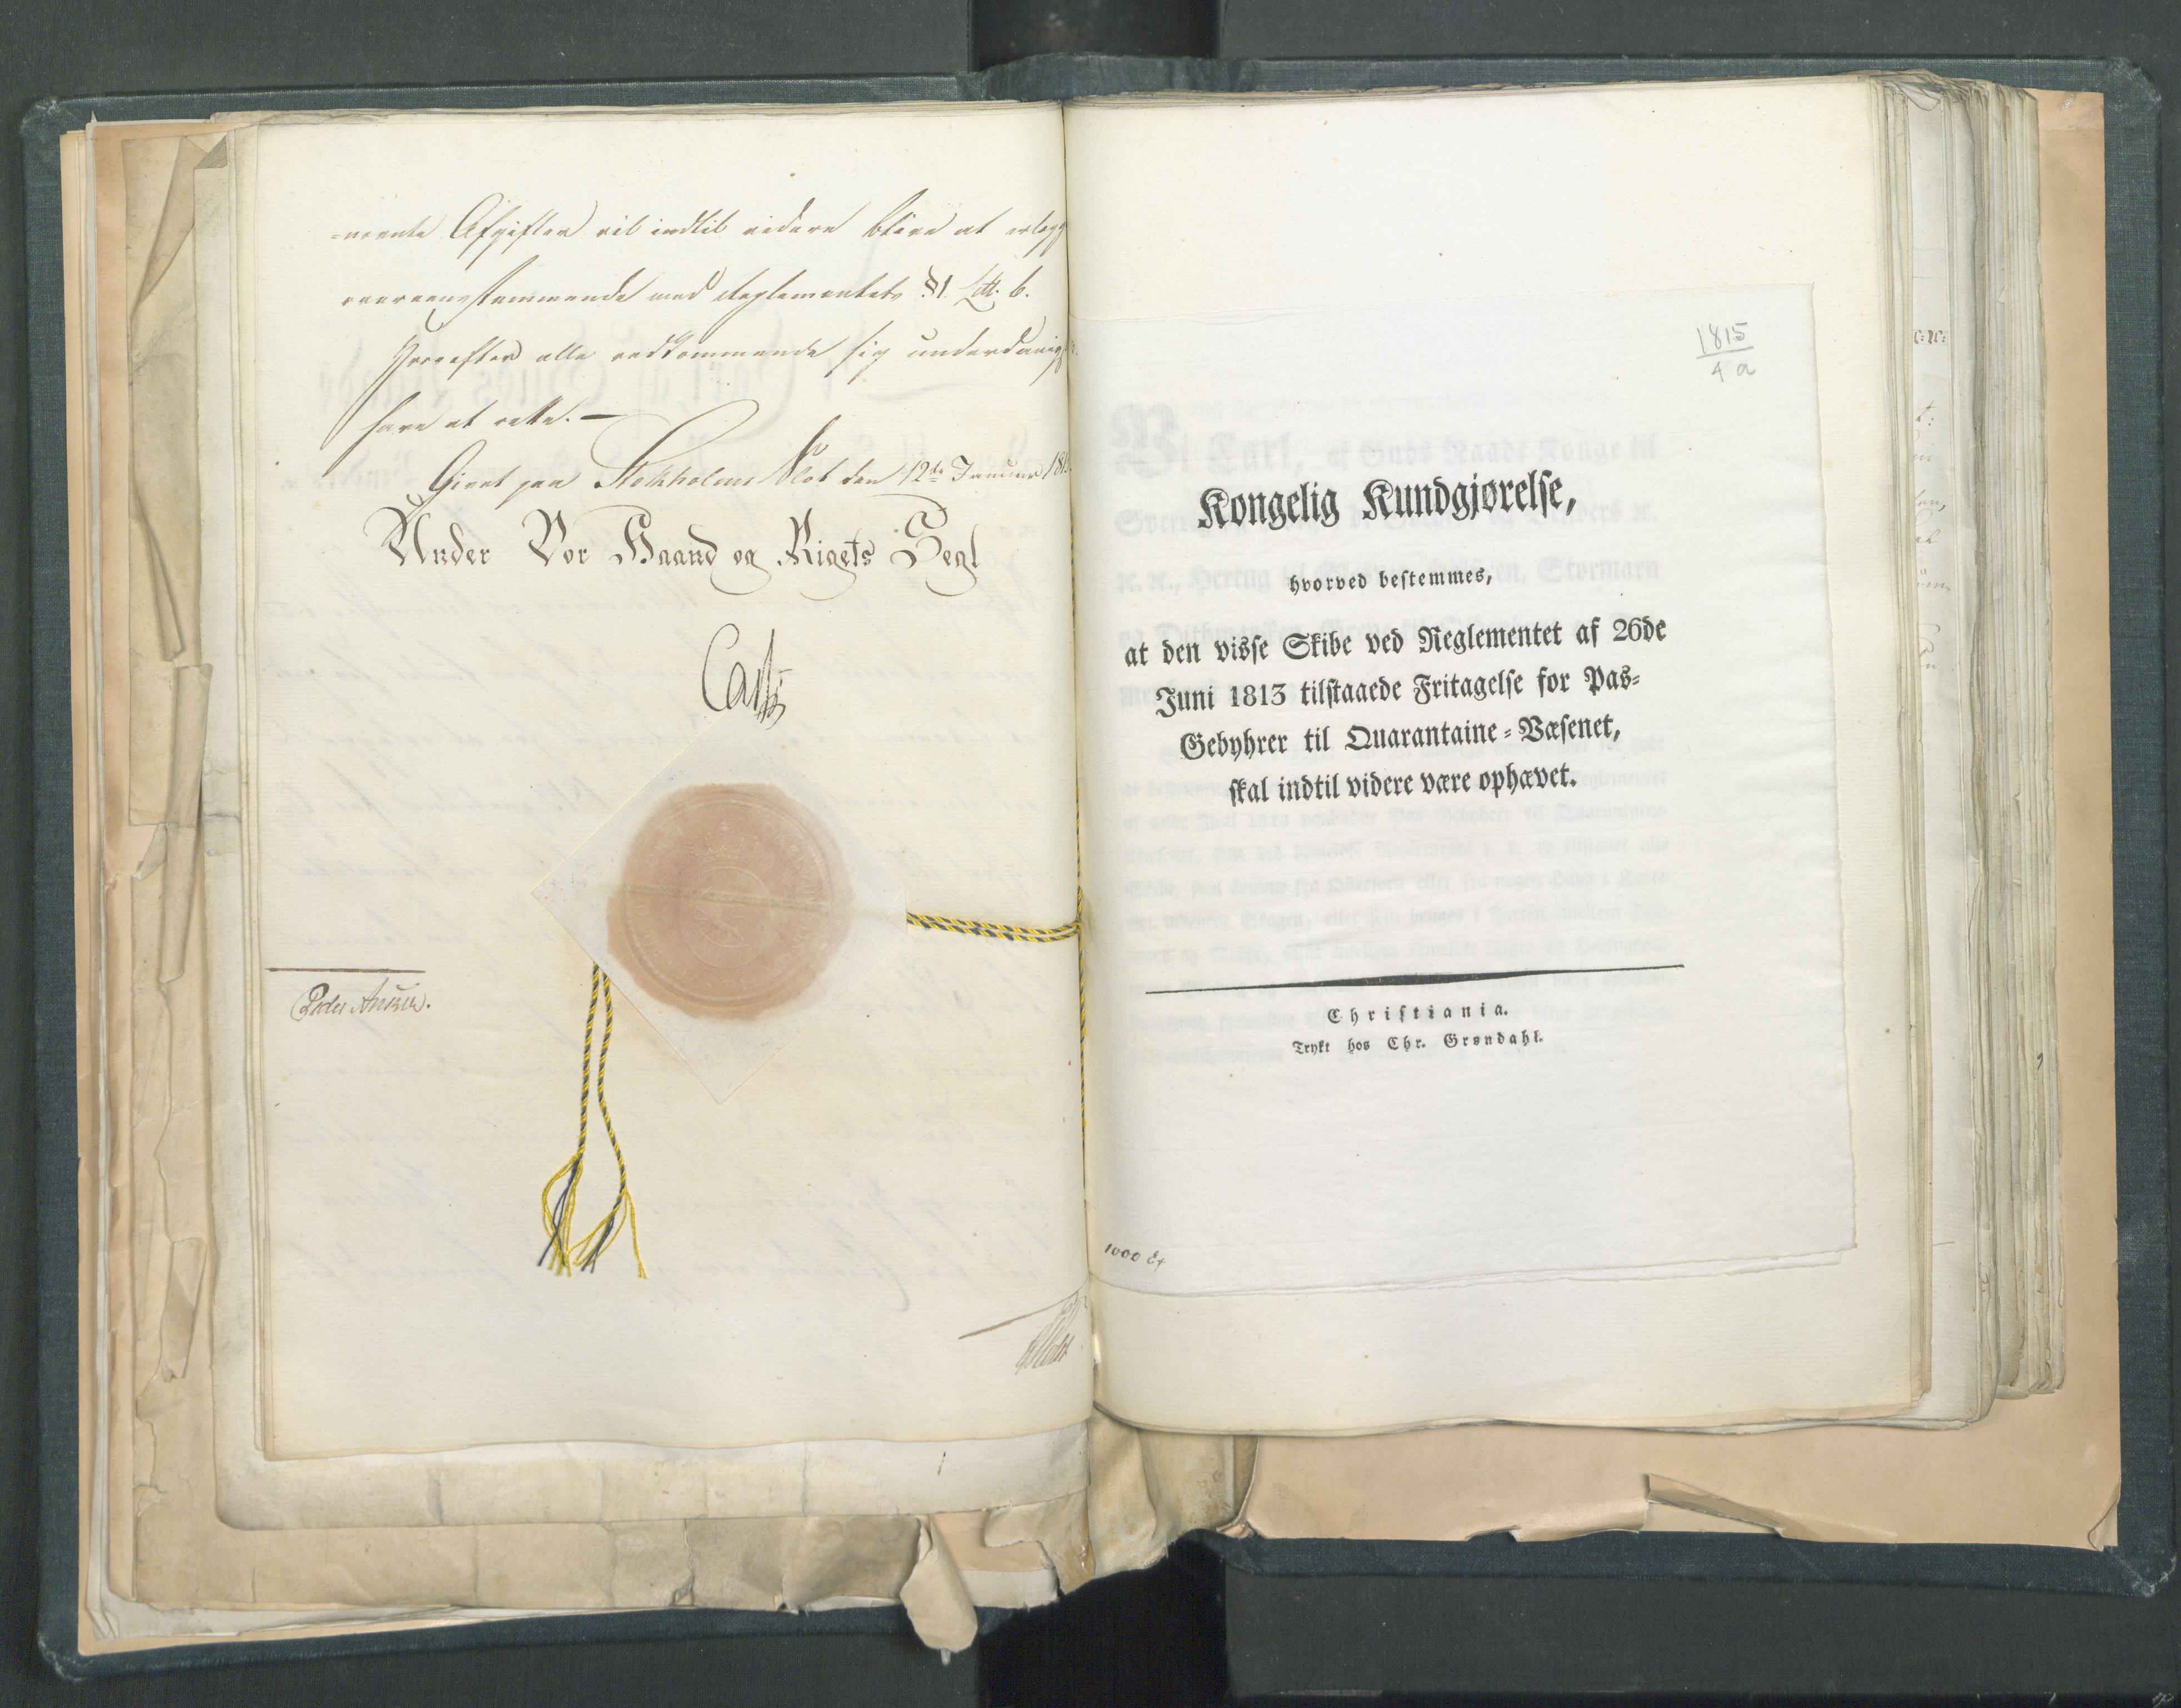 -nævnte Afgifter vil indtil videre blive at erlægge
overeensstemmende med Reglementets §1. Litt. b.
Hvorefter alle vedkommende sig underdanigst
have at rette. —
Givet paa Stokholms Slot den 12te Januar 181
Under Vor Haand og Rigets Segl
Carl
Peder Anker.
1815
4 a
Kongelig Kundgjørelse,
hvorved bestemmes,
at den visse Skibe ved Reglementet af 26de
Juni 1813 tilstaaede Fritagelse for Pas-
Gebyhrer til Quarantaine-Væsenet,
skal indtil videre være ophævet.
Christiania.
Trykt hos Chr. Grøndahl.
1000 Ex